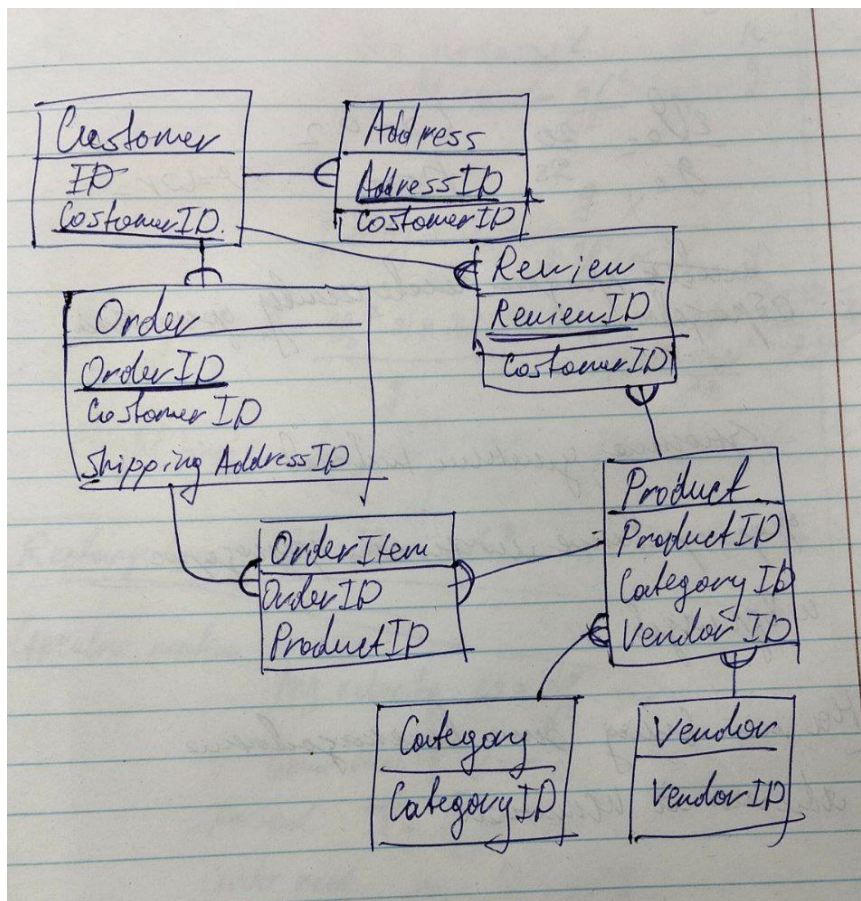 Customer
ID
CostomerID
Address
AddressID
CostomerID
Review
ReviewID
CostomerID
Order
OrderID
CostomerID
Shipping AddressID
OrderItem
OrderID
ProductID
Product
ProductID
CategoryID
VendorID
Category
CategoryID
Vendor
VendorID